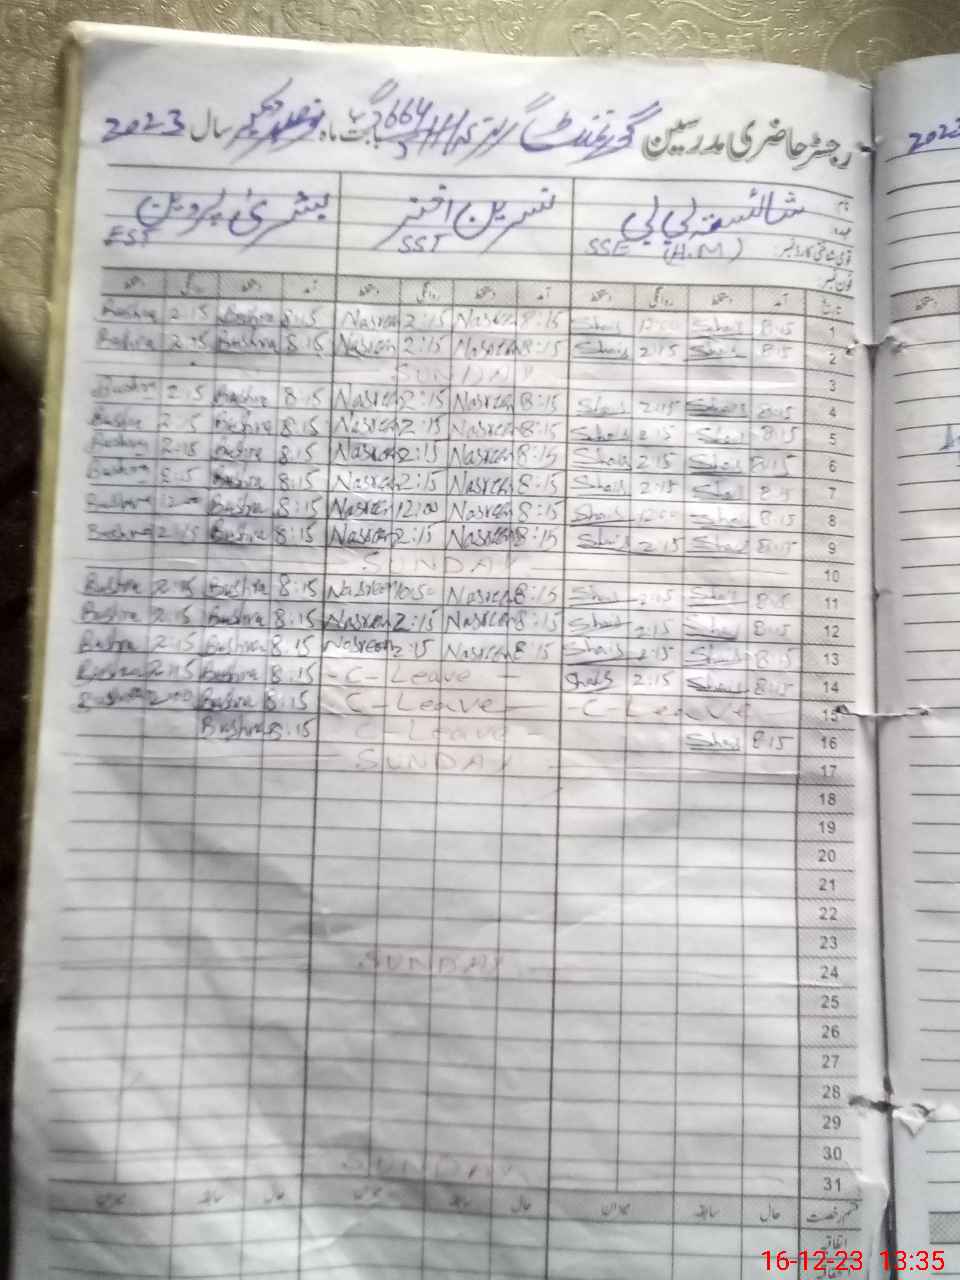 رجسٹر حاضری مدرسین گورنمنٹ گرلز 664 گ ب بابت ماہ دسمبر سال 2023
شائستہ بی بی نسرین اختر بشریٰ پروین
SSE (H.M) SST EST
آمد دستخط روانگی دستخط آمد دستخط روانگی دستخط آمد دستخط روانگی دستخط
Bushra 2:15 Bushra 8:15 Nasreen 2:15 Nasreen 8:15 Shais 12:00 Shais 8:15 1
Bushra 2:15 Bushra 8:15 Nasreen 2:15 Nasreen 8:15 Shais 2:15 Shais 8:15 2
SUNDAY 3
Bushra 2:15 Bushra 8:15 Nasreen 2:15 Nasreen 8:15 Shais 2:15 Shais 8:15 4
Bushra 2:15 Bushra 8:15 Nasreen 2:15 Nasreen 8:15 Shais 2:15 Shais 8:15 5
Bushra 2:15 Bushra 8:15 Nasreen 2:15 Nasreen 8:15 Shais 2:15 Shais 8:15 6
Bushra 2:15 Bushra 8:15 Nasreen 2:15 Nasreen 8:15 Shais 2:15 Shais 8:15 7
Bushra 12:00 Bushra 8:15 Nasreen 12:00 Nasreen 8:15 Shais 12:00 Shais 8:15 8
Bushra 2:15 Bushra 8:15 Nasreen 2:15 Nasreen 8:15 Shais 2:15 Shais 8:15 9
SUNDAY 10
Bushra 2:15 Bushra 8:15 Nasreen 10:50 Nasreen 8:15 Shais 2:15 Shais 8:15 11
Bushra 2:15 Bushra 8:15 Nasreen 2:15 Nasreen 8:15 Shais 2:15 Shais 8:15 12
Bushra 2:15 Bushra 8:15 Nasreen 2:15 Nasreen 8:15 Shais 2:15 Shais 8:15 13
Bushra 2:15 Bushra 8:15 - C - Leave - Shais 2:15 Shais 8:15 14
Bushra Bushra 8:15 C - Leave - - C - Leave 15
Bushra 8:15 C - Leave - Shais 8:15 16
SUNDAY 17
18
19
20
21
22
23
SUNDAY 24
25
26
27
28
29
30
SUNDAY 31
قسم رخصت حال سابقہ میزان حال سابقہ میزان حال سابقہ میزان
اتفاقیہ
2023
16-12-23 13:35